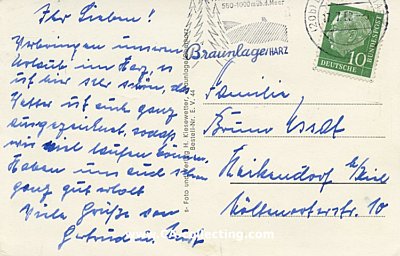 Ihr Lieben!
Verbringen unseren
Urlaub im Harz, es
ist hier sehr schön, das
Wetter ist auch ganz
ausgezeichnet, sodass
wir viel laufen können.
Haben uns auch schon
ganz gut erholt
Viele Grüße von
Gertrud u.
550-1000 m üb. d. Meer
Braunlage/HARZ
10
DEUTSCHE BUNDESPOST
Foto und Verlag H. Kiesewetter, Braunlage
Bestell-Nr. E. V. 44
Familie
Bruno
Heikendorf b/Kiel
Möltenorterstr. 10